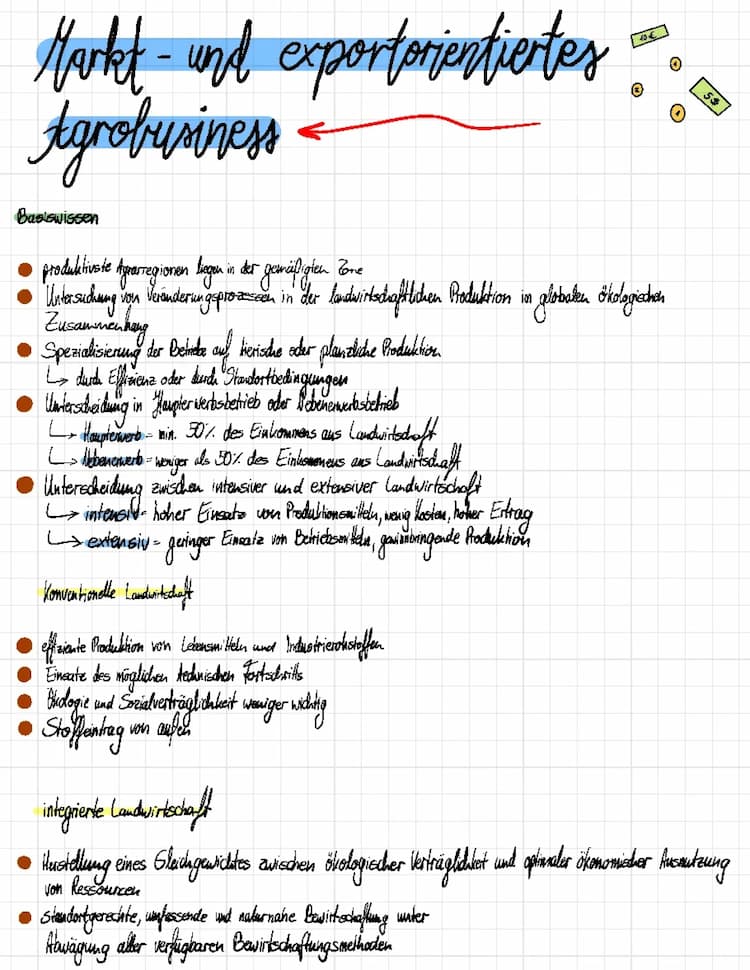 Markt- und exportorientiertes
10€
5$
Agrobusiness
Basiswissen
produktivste Agrarregionen liegen in der gemäßigten Zone
Untersuchung von Veränderungsprozessen in der landwirtschaftlichen Produktion im globalen ökologischen
Zusammenhang
Spezialisierung der Betriebe auf tierische oder planzliche Produktion
↳ durch Effizienz oder durch Standortbedingungen
Unterscheidung in Haupterwerbsbetrieb oder Nebenerwerbsbetrieb
↳ Haupterwerb = min. 50% des Einkommens aus Landwirtschaft
↳ Nebenerwerb = weniger als 50% des Einkommens aus Landwirtschaft
Unterscheidung zwischen intensiver und extensiver Landwirtschaft
↳ intensiv = hoher Einsatz von Produktionsmitteln, wenig Kosten, hoher Ertrag
↳ extensiv = geringer Einsatz von Betriebsmitteln, gewinnbringende Produktion
Konventionelle Landwirtschaft
effiziente Produktion von Lebensmitteln und Industrierohstoffen
Einsatz des möglichen technischen Fortschritts
Ökologie und Sozialverträglichkeit weniger wichtig
Stoffeintrag von außen
integrierte Landwirtschaft
Herstellung eines Gleichgewichtes zwischen ökologischer Verträglichkeit und optimaler ökonomischer Ausnutzung
von Ressourcen
standortgerechte, umfassende und naturnahe Bewirtschaftung unter
Abwägung aller verfügbaren Bewirtschaftungsmethoden